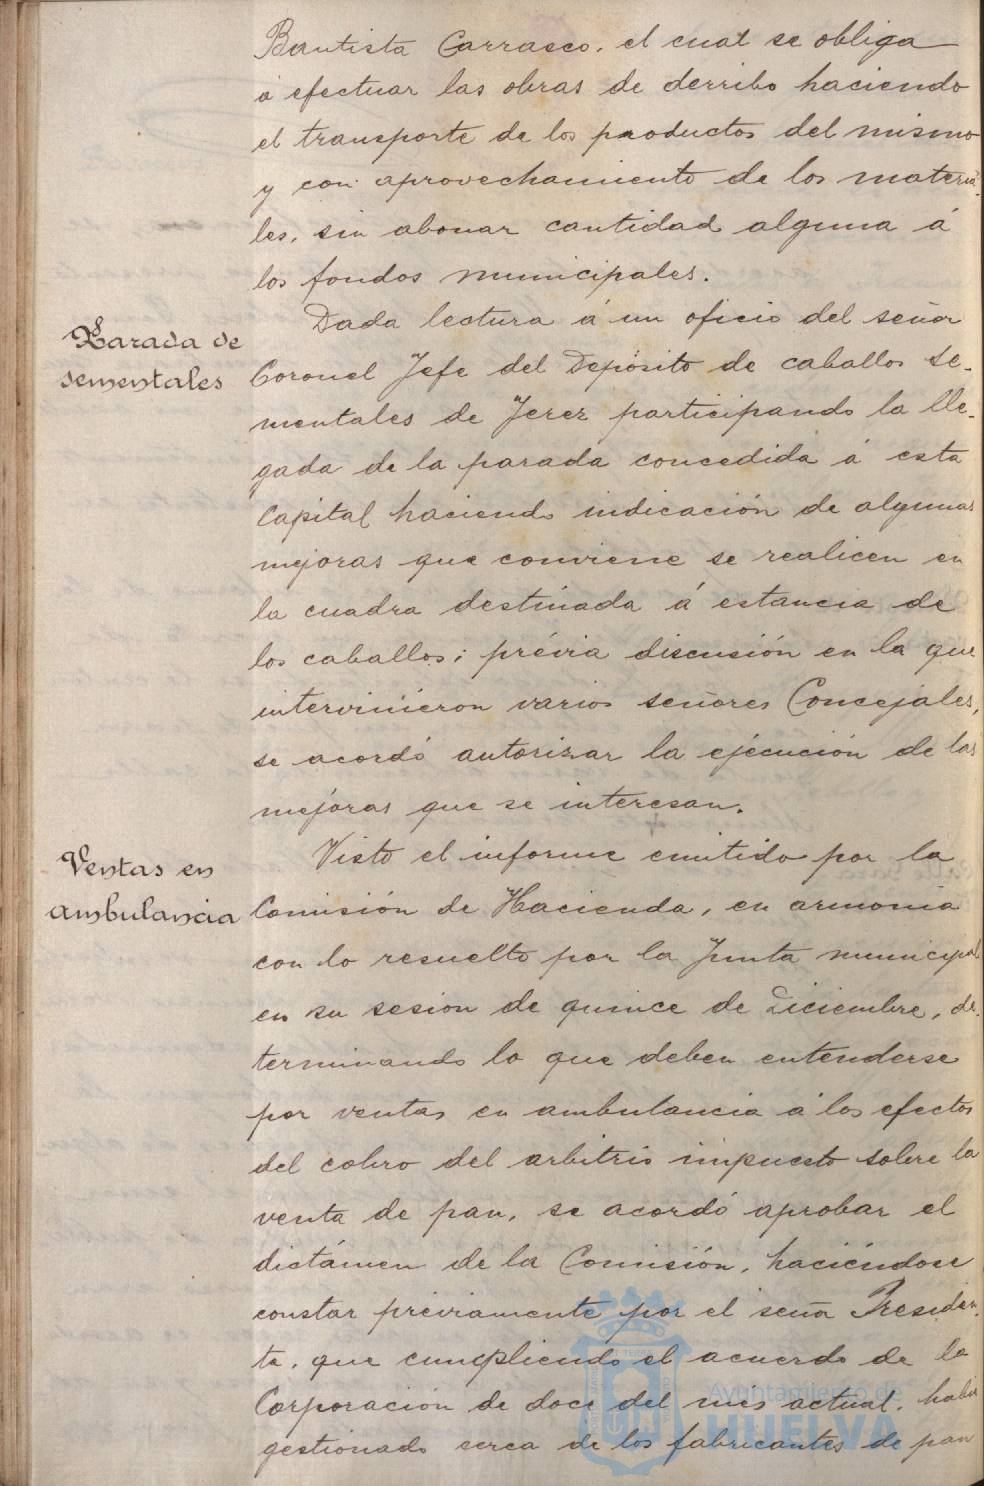 Bautista Carrasco, el cual se obliga
á efectuar las obras de derribo haciendo
el transporte de los productos del mismo
y con aprovechamiento de los materia-
les, sin abonar cantidad alguna á
los fondos municipales.
Parada de
sementales
Dada lectura á un oficio del señor
Coronel Jefe del Depósito de caballos se-
mentales de Jerez participando la lle-
gada de la parada concedida á esta
Capital haciendo indicación de algunas
mejoras que conviene se realicen en
la cuadra destinada á estancia de
los caballos; prévia discusión en la que
intervinieron varios señores Concejales,
se acordó autorizar la ejécución de las
mejoras que se interesan.
Ventas en
ambulancia
Visto el informe emitido por la
Comisión de Hacienda, en armonia
con lo resuelto por la Junta municipal
en su sesion de quince de Diciembre, de-
terminando lo que deben entenderse
por ventas en ambulancia á los efectos
del cobro del arbitrio impuesto sobre la
venta de pan, se acordó aprobar el
dictámen de la Comisión, haciéndose
constar préviamente por el señor Presiden-
te, que cumpliendo el acuerdo de la
Corporación de doce del mes actual, habia
gestionado cerca de los fabricantes de pan
Ayuntamiento de
HUELVA